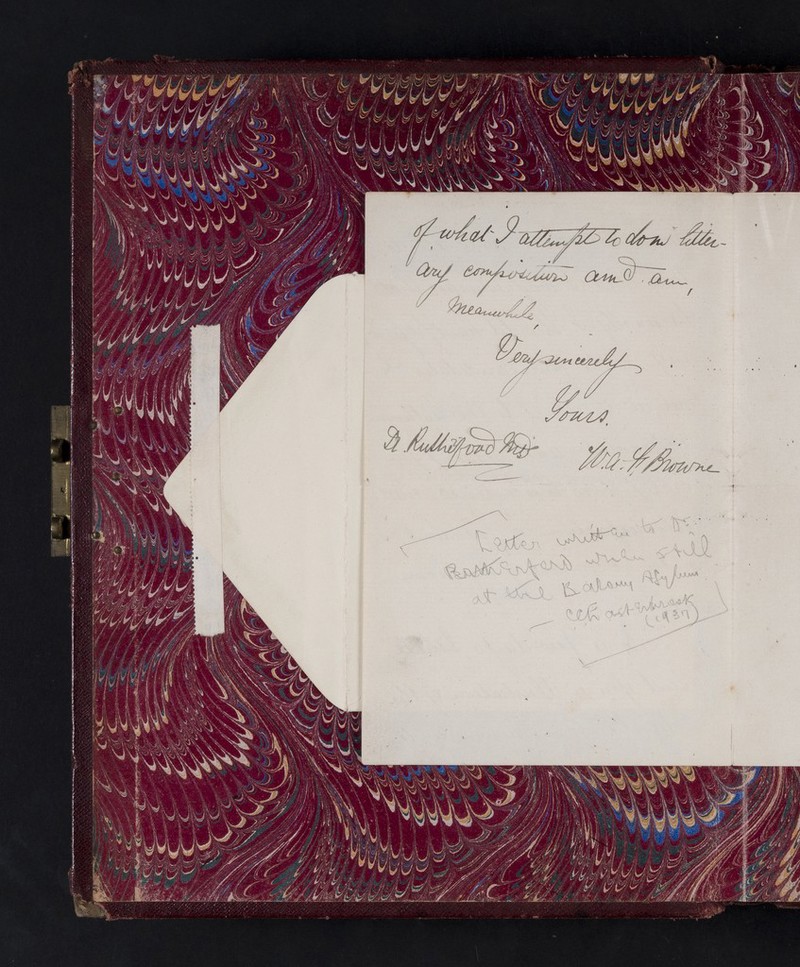 of what I attempt to do in litter-
ary composition and am,
Meanwhile,
Very sincerely
Yours.
Dr. Rutherford Md
W. A. F. Browne
Letter written to Dr.
Rutherford when still
at the Barony Asylum
(1937)